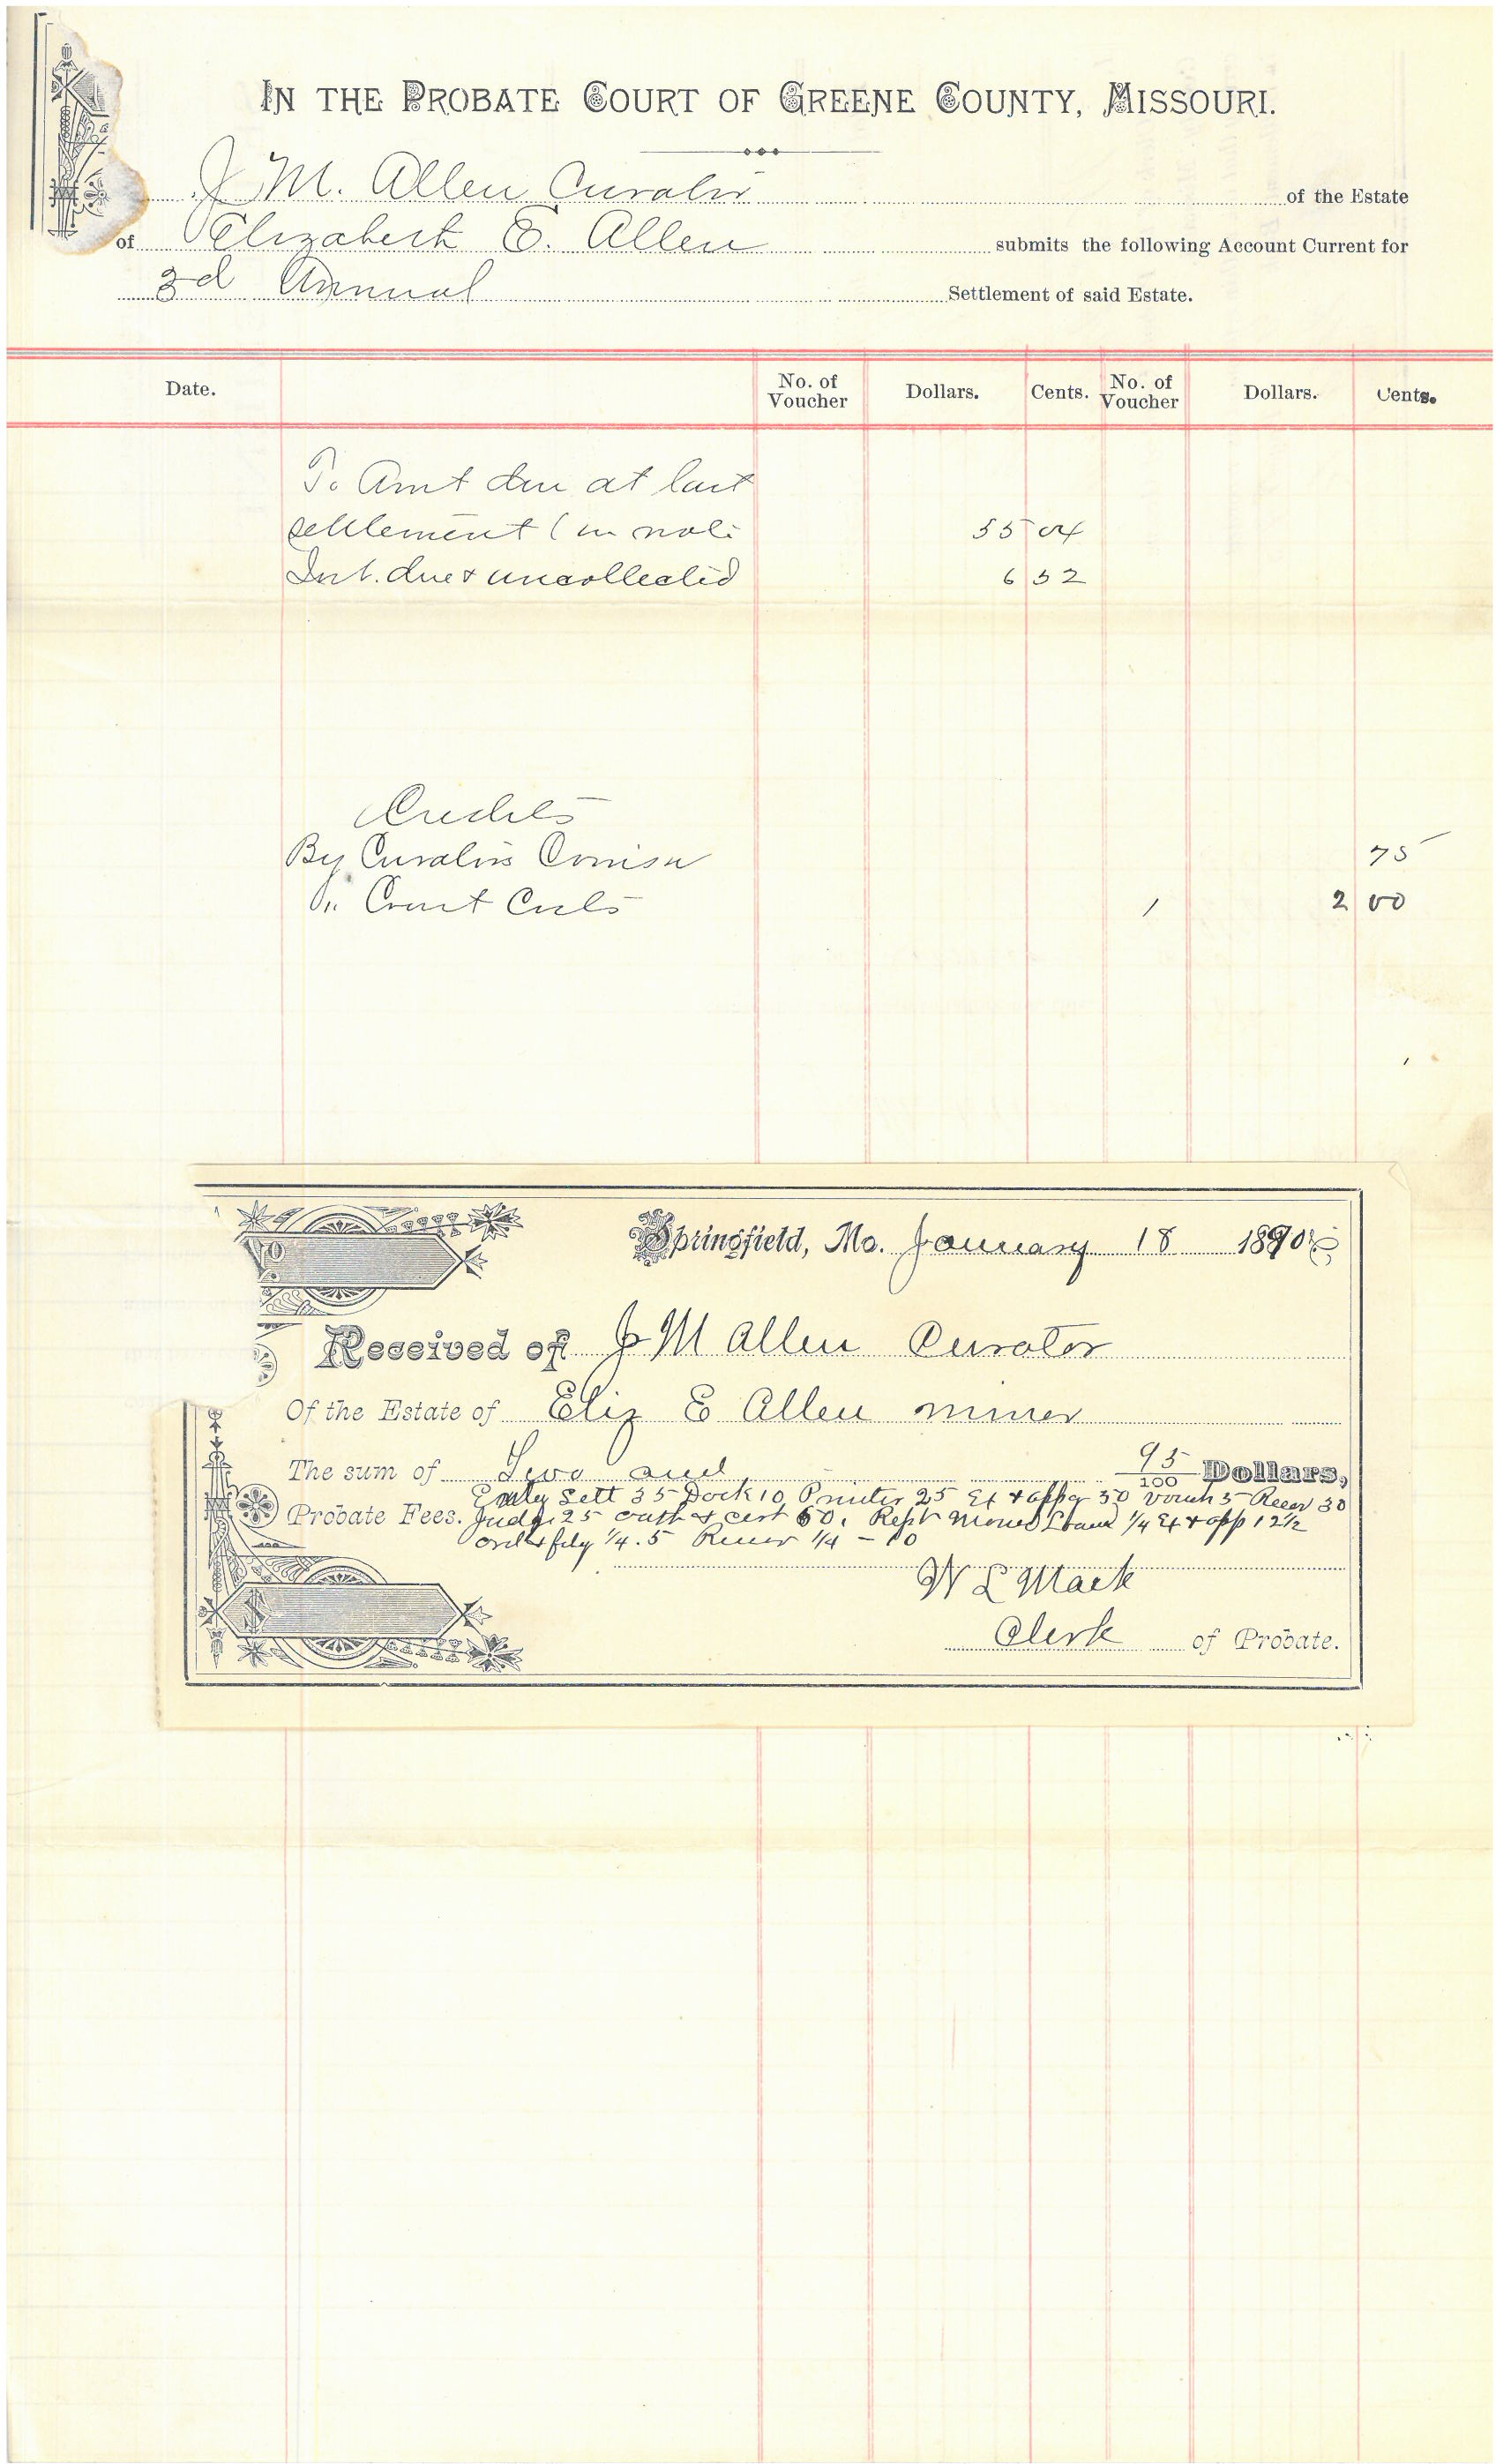 IN THE PROBATE COURT OF GREENE COUNTY, MISSOURI.
J M. Allen Curator of the Estate
of Elizabeth E. Allen submits the following Account Current for
3d Annual Settlement of said Estate.
Date. No. of Voucher Dollars. Cents. No. of Voucher Dollars. Cents.
To Amt due at last
settlement (in note 55 04
Int. due & uncollected 6 52
Credits
By Curators Comisn 75
" Court Costs 1 2 00
Springfield, Mo. January 18 1890
Received of J M Allen Curator
Of the Estate of Eliz E Allen minor
The sum of Two and 95/100 Dollars,
Entry Sett 35 Dock 10 Printer 25 Ex & app g 50 Vouch 5 Recor 30
Probate Fees. Judg 25 oath & cert 60. Rept Money Loand 1/4 Ex & app 12 1/2
ord & filg 1/4. 5 Recor 1/4 - 10
W L Mack
Clerk of Probate.